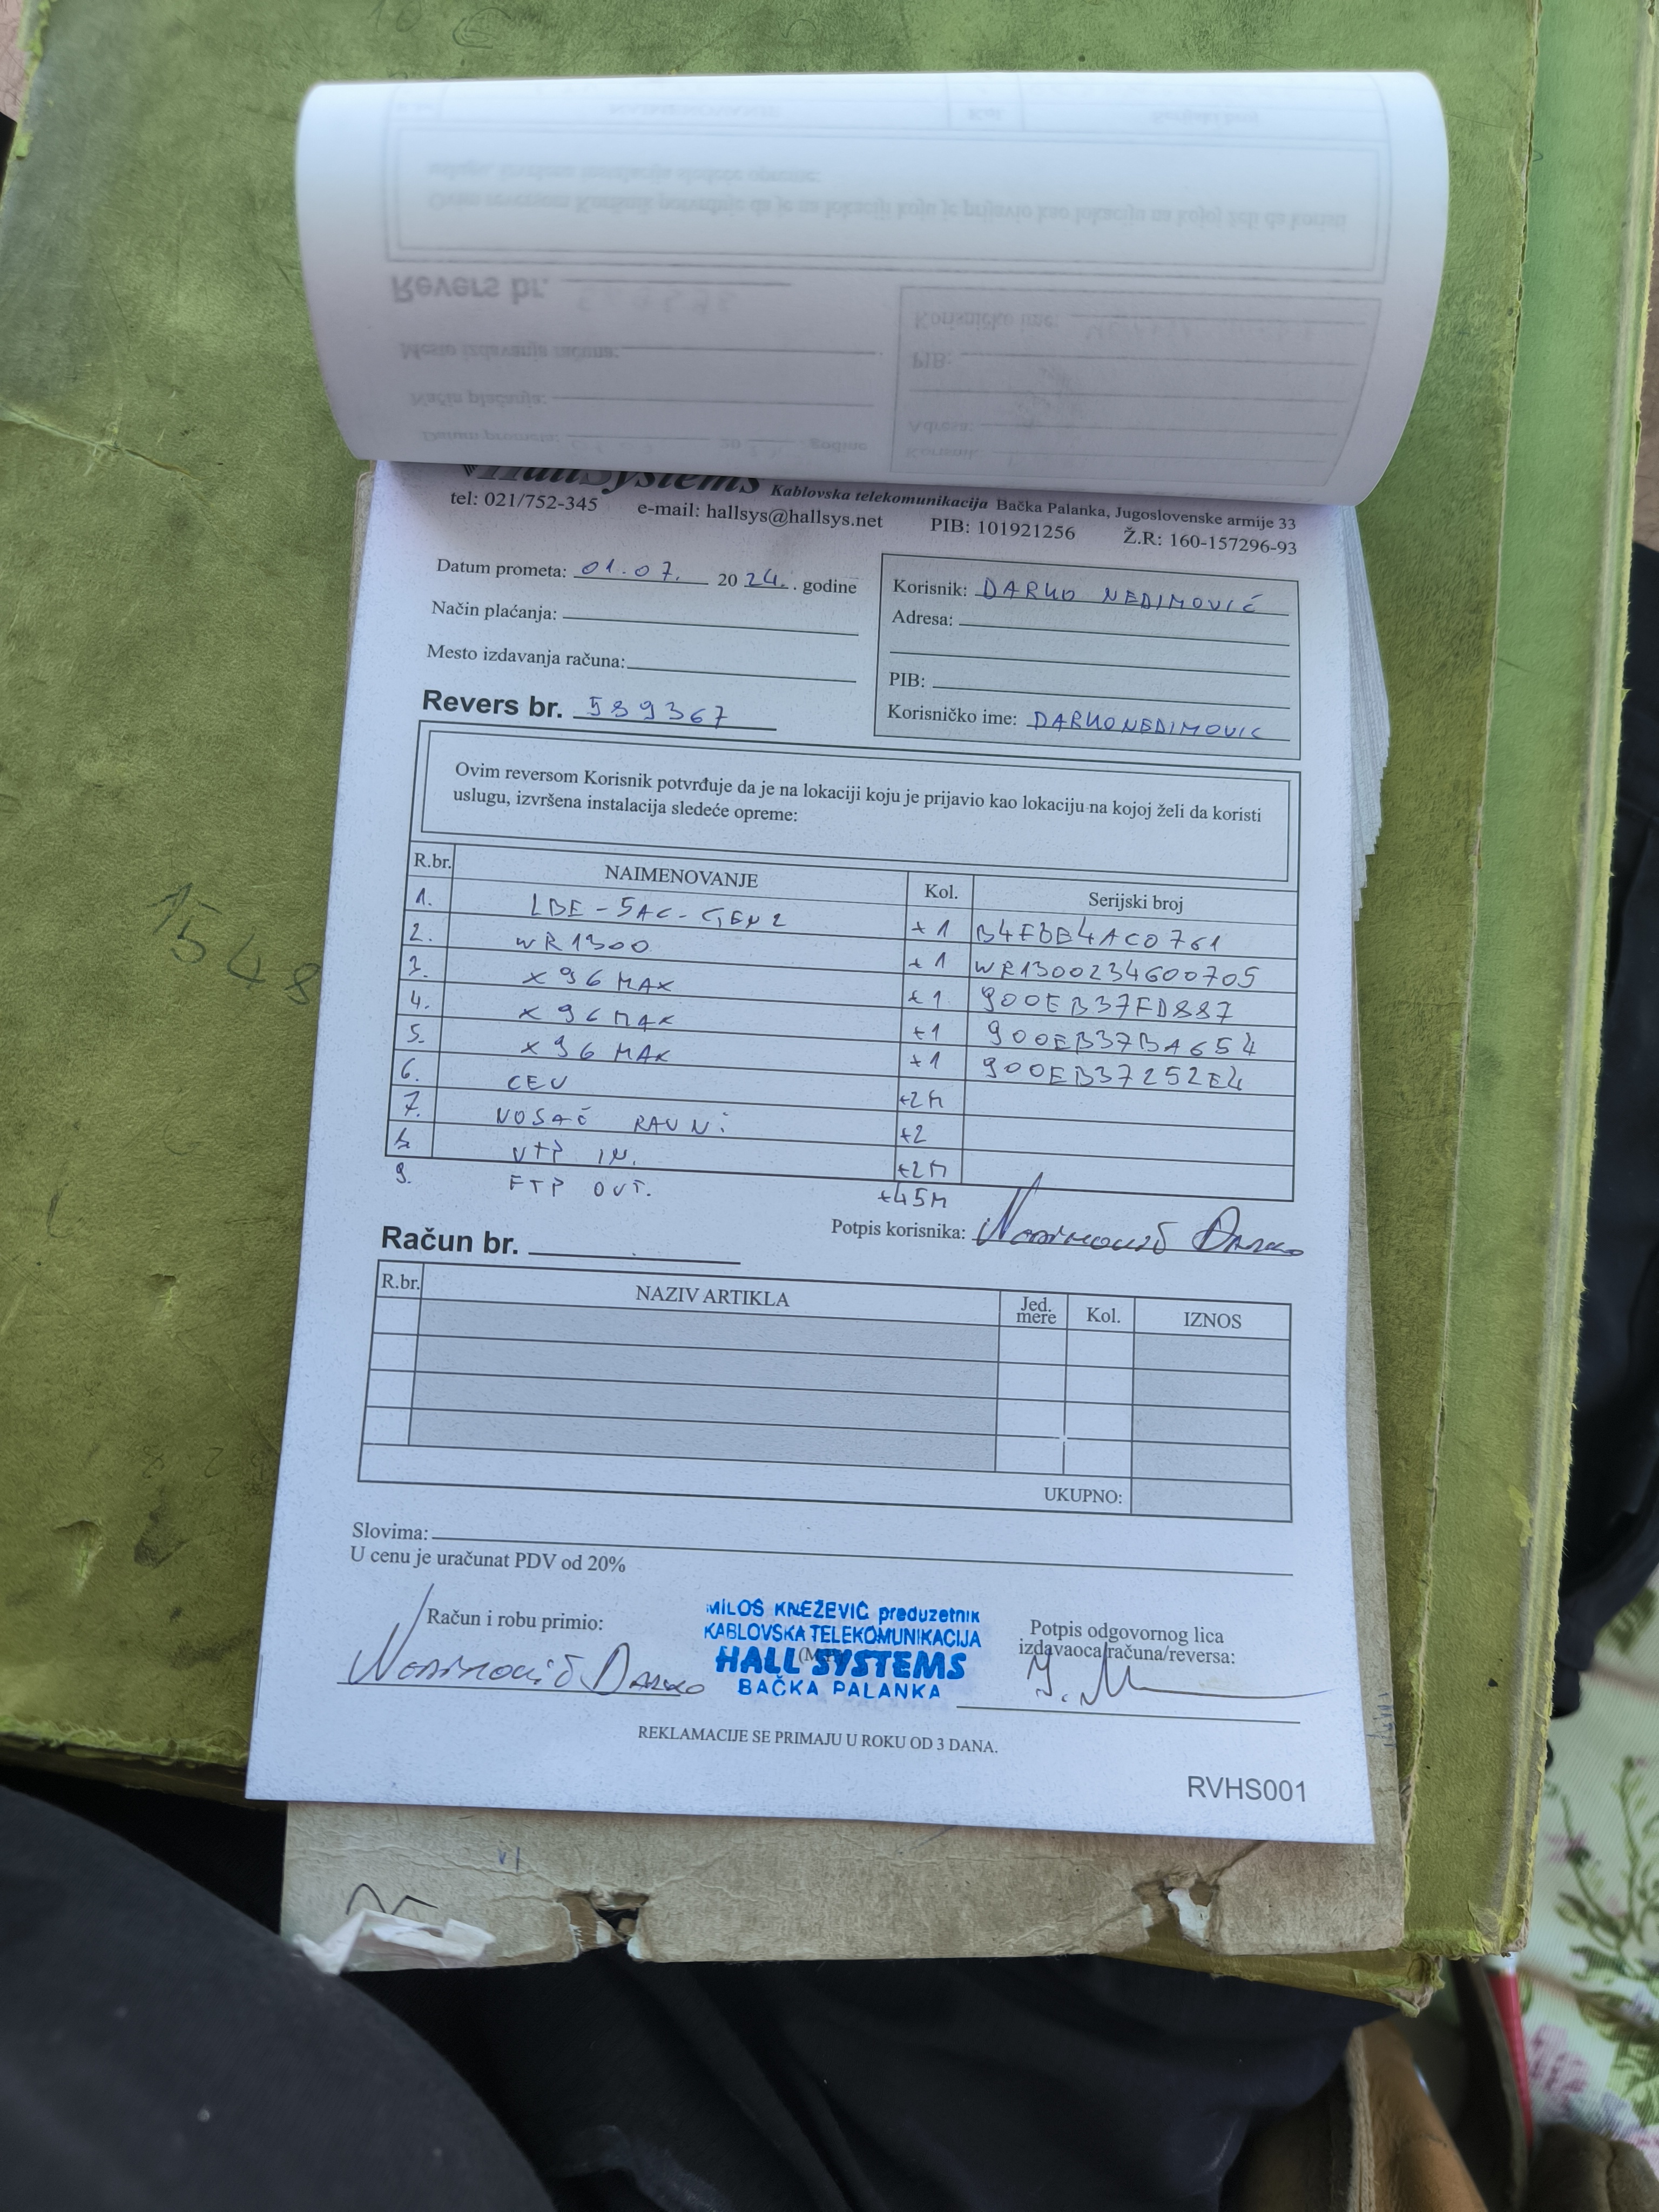 HallSystems Kablovska telekomunikacija Bačka Palanka, Jugoslovenske armije 33
tel: 021/752-345 e-mail: hallsys@hallsys.net PIB: 101921256 Ž.R: 160-157296-93
Datum prometa: 01.07. 2024. . godine
Način plaćanja:
Mesto izdavanja računa:
Revers br. 589367
Korisnik: DARKO NEDIMOVIĆ
Adresa:
PIB:
Korisničko ime: DARKONEDIMOVIC
Ovim reversom Korisnik potvrđuje da je na lokaciji koju je prijavio kao lokaciju na kojoj želi da koristi
uslugu, izvršena instalacija sledeće opreme:
R.br. NAIMENOVANJE Kol. Serijski broj
1. LBE-5AC-GEN2 +1 B4FBE4AC0761
2. WR1300 +1 WR1300234600705
3. X96 MAX +1 900EB37FD887
4. X96 MAX +1 900EB37BA654
5. X96 MAX +1 900EB37252E4
6. CEV +2M
7. NOSAČ RAVNi +2
8. UTP IN. +2M
9. FTP OUT. +45M
Potpis korisnika: Nedimović Darko
Račun br.
R.br. NAZIV ARTIKLA Jed. mere Kol. IZNOS
UKUPNO:
Slovima:
U cenu je uračunat PDV od 20%
Račun i robu primio:
Nedimović Darko
MILOŠ KNEŽEVIĆ preduzetnik
KABLOVSKA TELEKOMUNIKACIJA
HALL SYSTEMS
BAČKA PALANKA
Potpis odgovornog lica
izdavaoca računa/reversa:
REKLAMACIJE SE PRIMAJU U ROKU OD 3 DANA.
RVHS001
1548